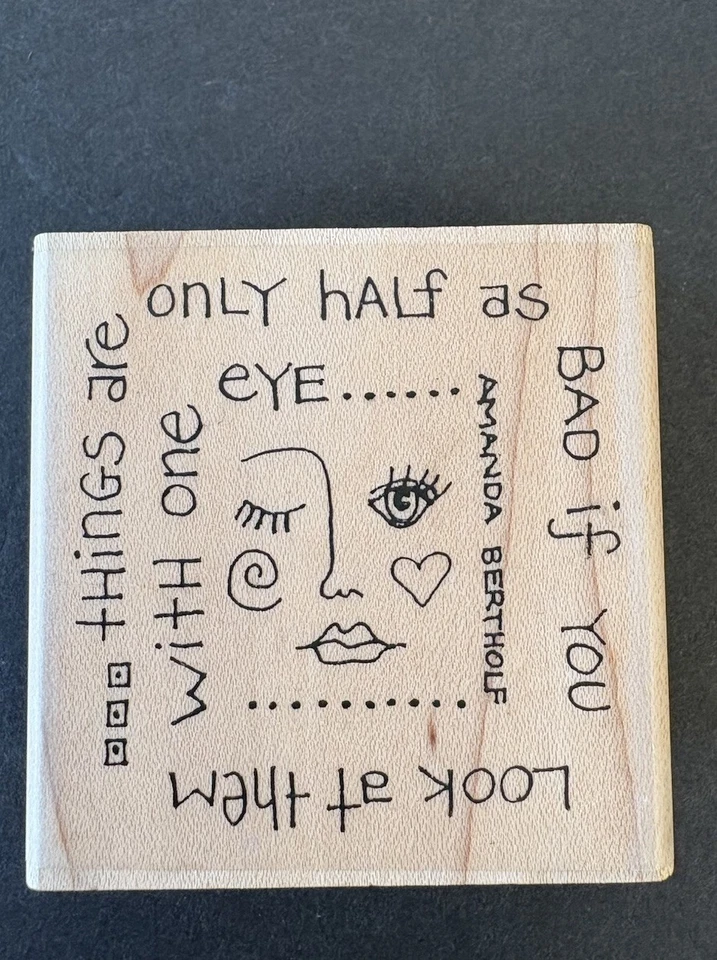 tHiNGS are
onLY hALf as
BAD if YOU
LOOK at them
WitH one
eYE......
AMANDA BERTHOLF